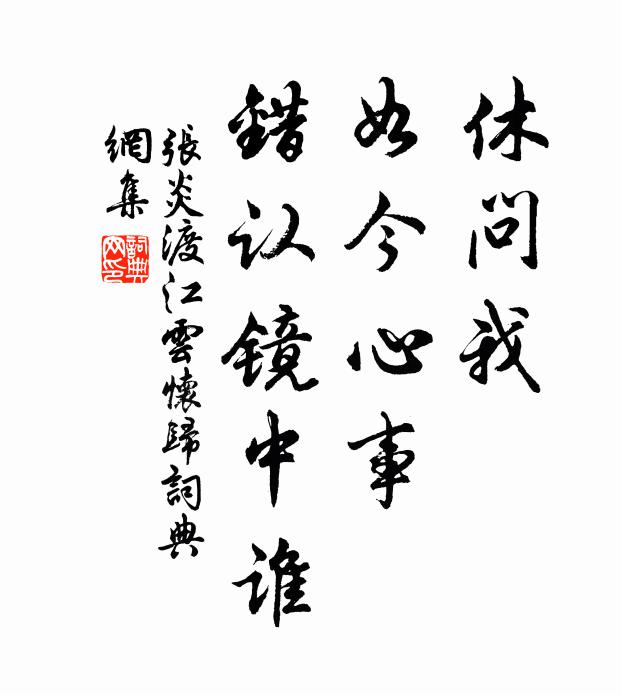 休问我
如今心事
错认镜中谁
張炎渡江雲懷歸詞典
網集
詞典
网印